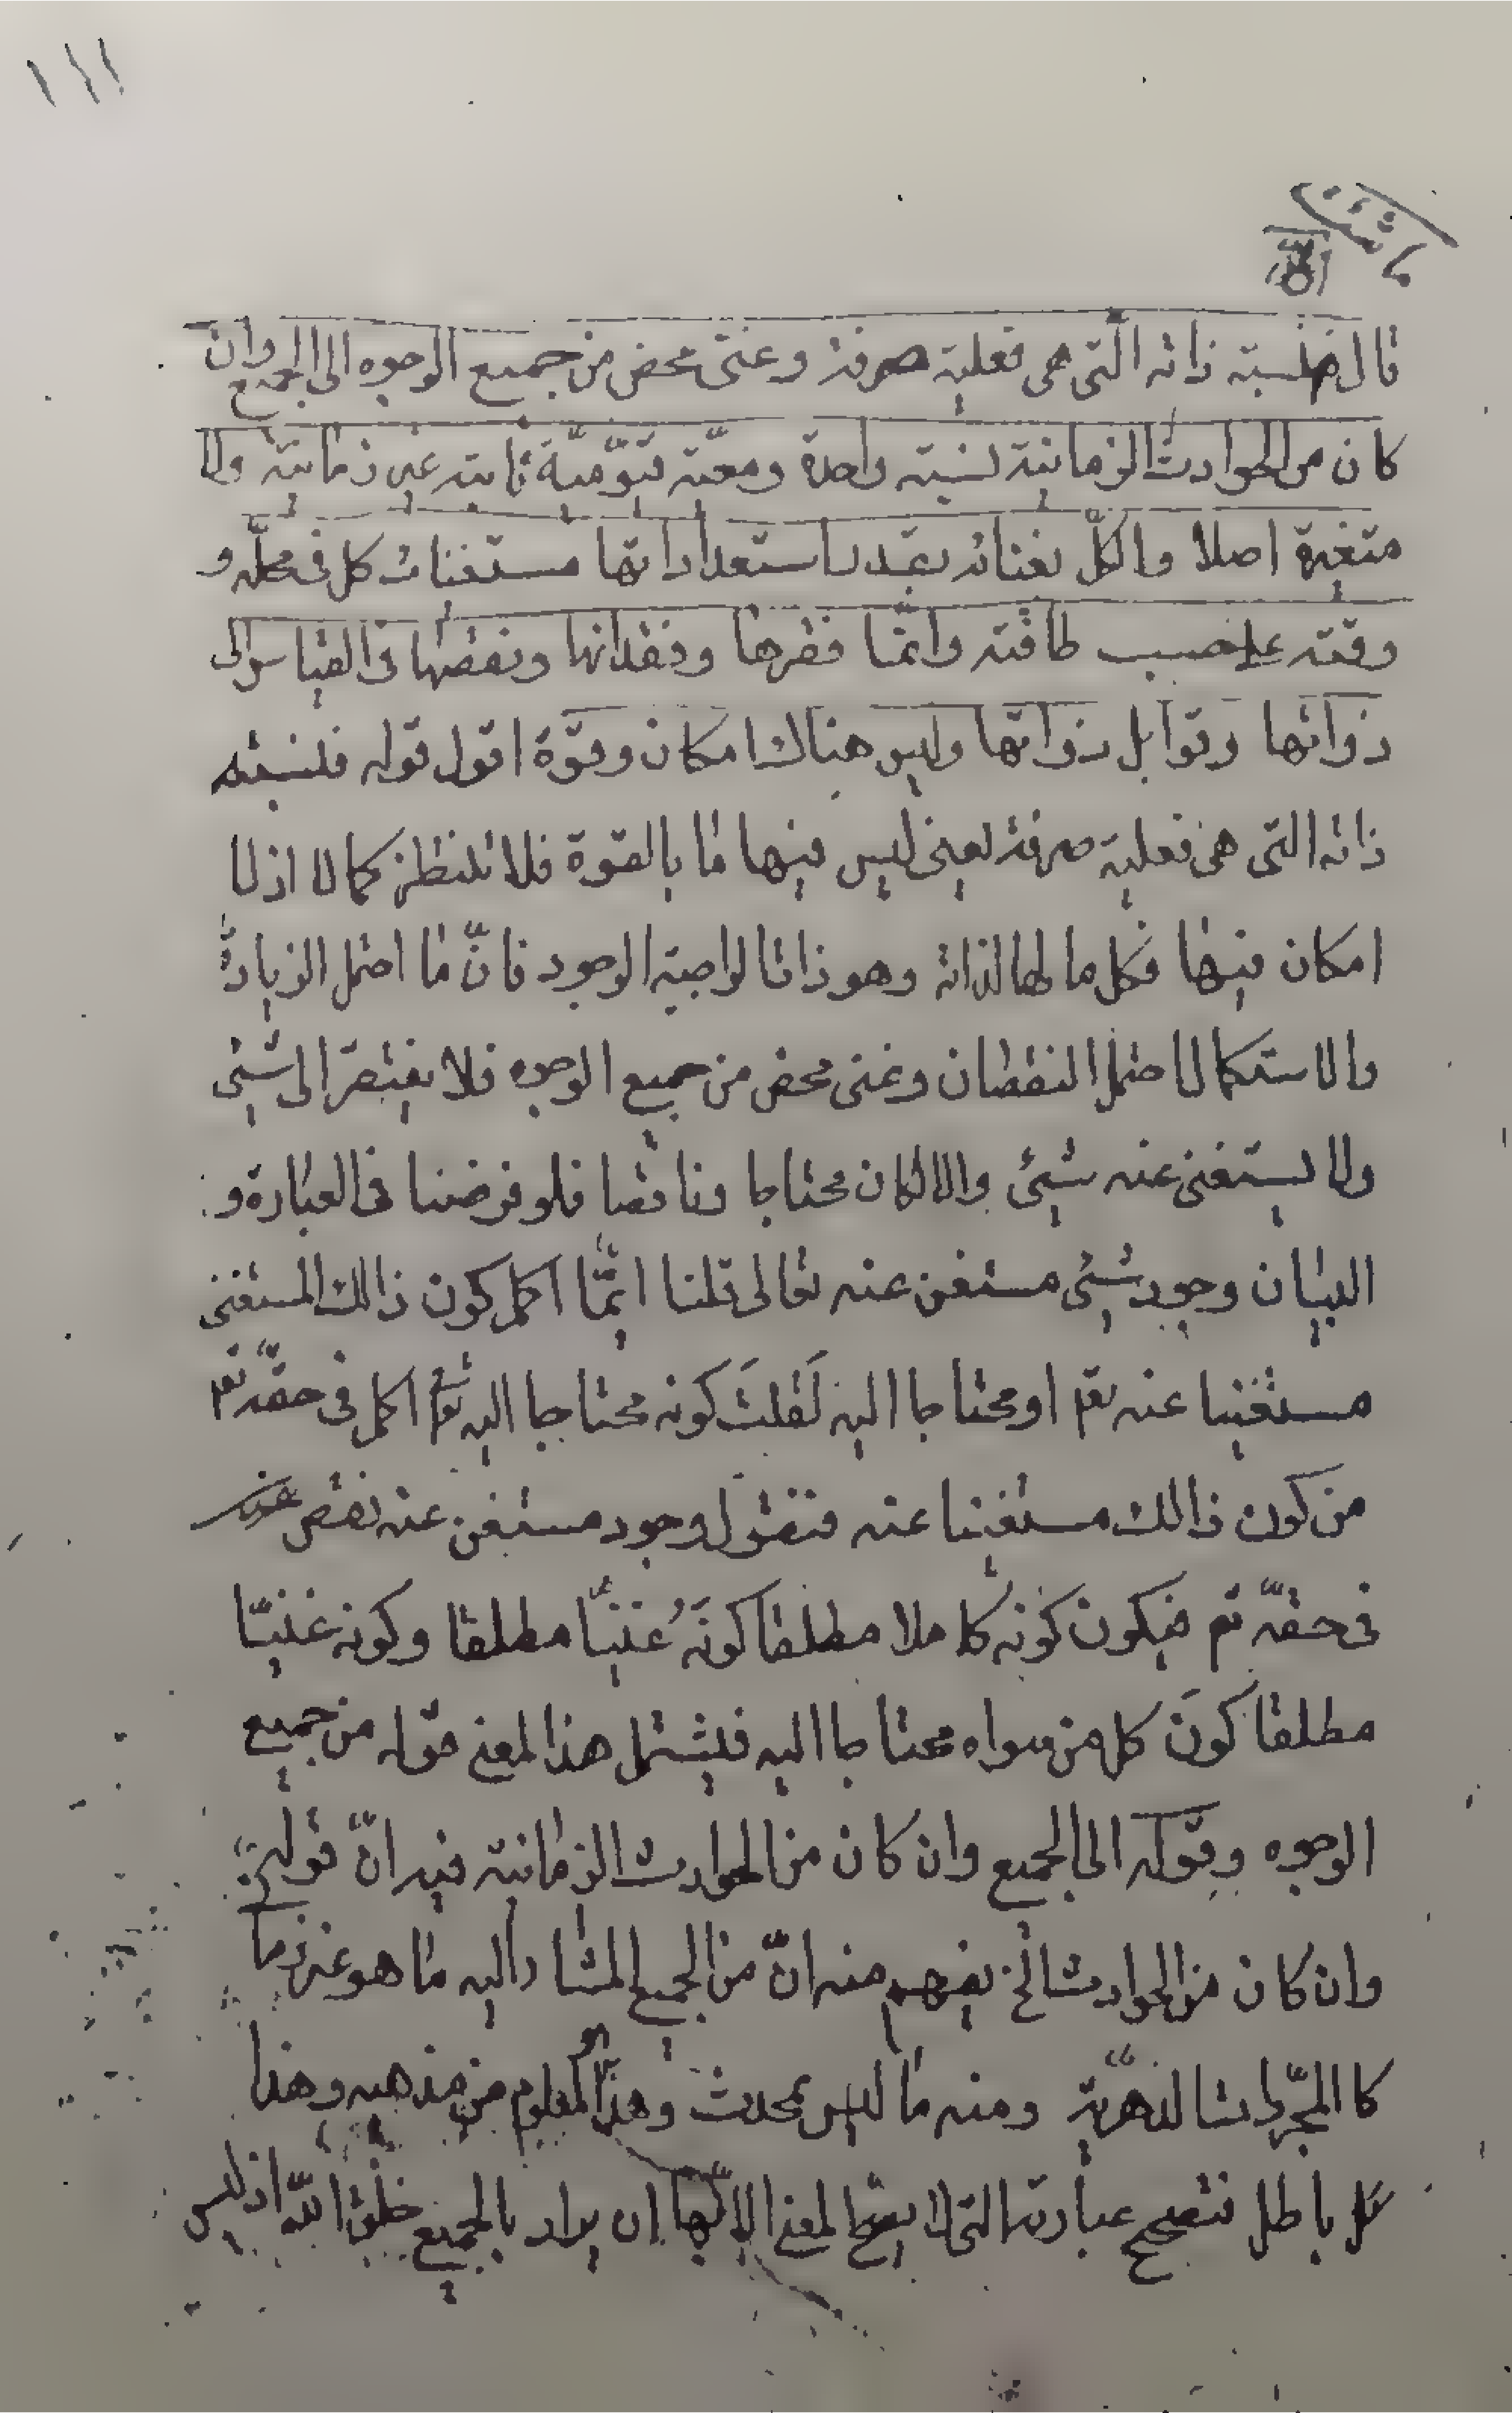 ١١١
ما شئت
الله
قال فلنسبة ذاته التى هى فعلية صرفة وغنى محض من جميع الوجوه الى الجميع وان
كان من الحوادث الزمانية نسبة واحدة ومعية قيومية ثابتة غير زمانية ولا
متغيرة اصلا والكل بغنائه بقدر استعداداتها مستغنيات كل فى محله و
وقته على حسب طاقته وانما فقرها وفقدانها ونقصها فى القياس الى
ذواتها وقوابل ذواتها وليس هناك امكان وقوة اقول قوله فلنسبة
ذاته التى هى فعلية صرفة يعنى ليس فيها ما بالقوة فلا تنتظر كمالا اذ لا
امكان فيها فكل ما لها لذاته وهو ذاتا لواجبة الوجود فانّ ما احتمل الزيادة
والاستكمال احتمل النقصان وغنى محض من جميع الوجوه فلا يفتقر الى شيئ
ولا يستغنى عنه شيئ والا لكان محتاجا وناقصا فلو فرضنا فى العبارة و
البيان وجود شيئ مستغن عنه تعالى قلنا ايّما اكمل كون ذالك المستغنى
مستغنيا عنه تعم او محتاجا اليه لَقلتَ كونه محتاجا اليه تعم اكمل فى حقّه تعم
من كون ذالك مستغنيا عنه فنقول وجود مستغن عنه نقص
فى حقّه تم فيكون كونه كاملا مطلقا كونَه غنيّا مطلقا وكونه غنيّا
مطلقا كونَ كل من سواه محتاجا اليه فيشتمل هذا المعنى قوله من جميع
الوجوه وقوله الى الجميع وان كان من الحوادث الزمانية فيه انّ قوله
وان كان من الحوادث الخ يفهم منه انّ من الجميع المشار اليه ما هو غير زما
كا المجّردات الدهريّة ومنه ما ليس بمحدث وهذا معلوم من مذهبه وهذا
كل باطل فتصحيح عبارته التى لا يصح المعنى الا بها ان يراد بالجميع خلق الله اذ ليس